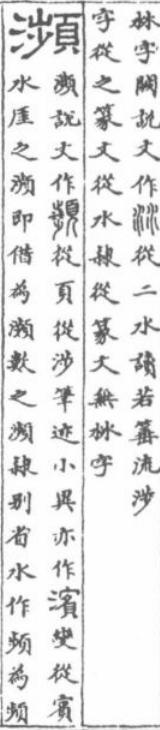 沝字闕說文作沝從二水讀若箠流涉
字從之篆文從水隸從篆文無沝字
瀕
瀕說文作瀕從頁從涉筆迹小異亦作濱變從賓
水厓之瀕即借為瀕數之瀕隸別省水作頻為頻